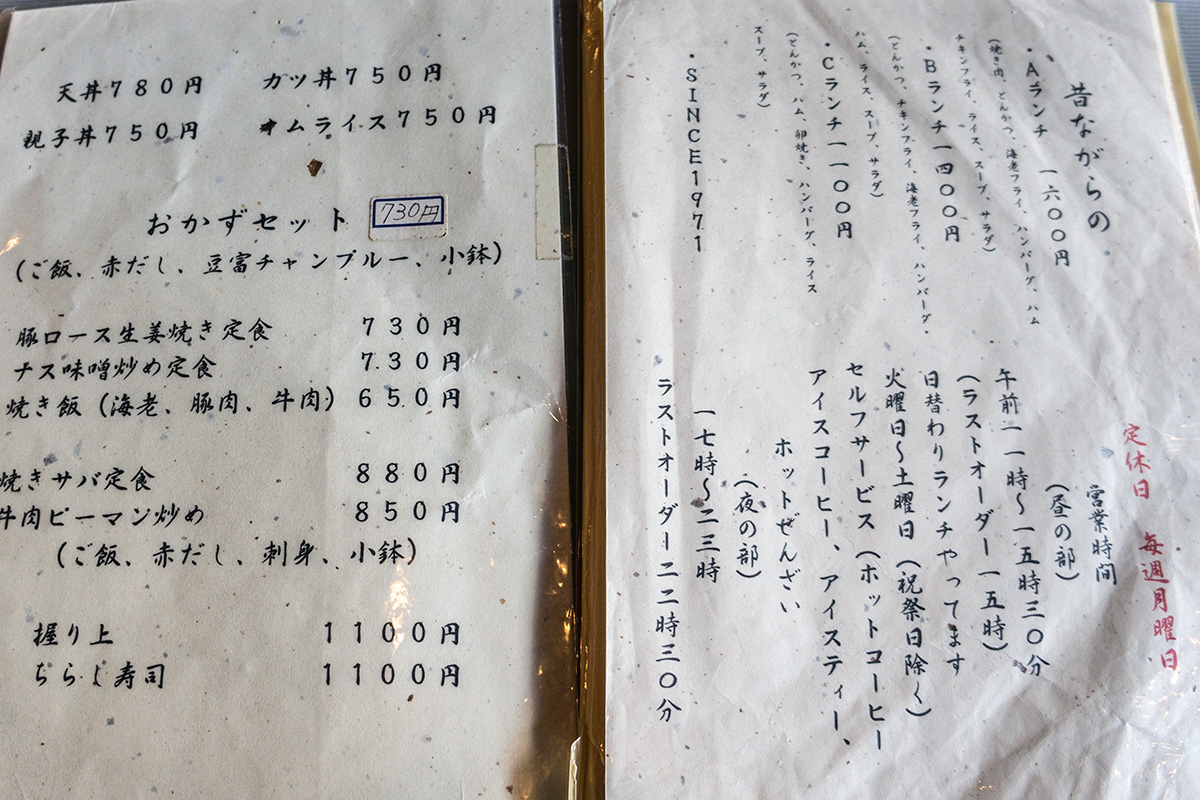 天丼７８０円　カツ丼７５０円
親子丼７５０円　オムライス７５０円
おかずセット　730円
(ご飯、赤だし、豆富チャンプルー、小鉢)
豚ロース生姜焼き定食　７３０円
ナス味噌炒め定食　７３０円
焼き飯（海老、豚肉、牛肉）６５０円
焼きサバ定食　８８０円
牛肉ピーマン炒め　８５０円
(ご飯、赤だし、刺身、小鉢)
握り上　１１００円
ちらし寿司　１１００円
昔ながらの
・Ａランチ　一六〇〇円
(焼き肉、とんかつ、海老フライ、ハンバーグ、ハム
チキンフライ、ライス、スープ、サラダ)
・Ｂランチ一四〇〇円
(とんかつ、チキンフライ、海老フライ、ハンバーグ・
ハム、ライス、スープ、サラダ)
・Ｃランチ一一〇〇円
(とんかつ、ハム、卵焼き、ハンバーグ、ライス
スープ、サラダ)
・ＳＩＮＣＥ１９７１
定休日　毎週月曜日
営業時間
（昼の部）
午前一一時～一五時三〇分
（ラストオーダー一五時）
日替わりランチやってます
火曜日～土曜日（祝祭日除く）
セルフサービス（ホットコーヒー
アイスコーヒー、アイスティー、
ホットぜんざい
（夜の部）
一七時～二三時
ラストオーダー二二時三〇分